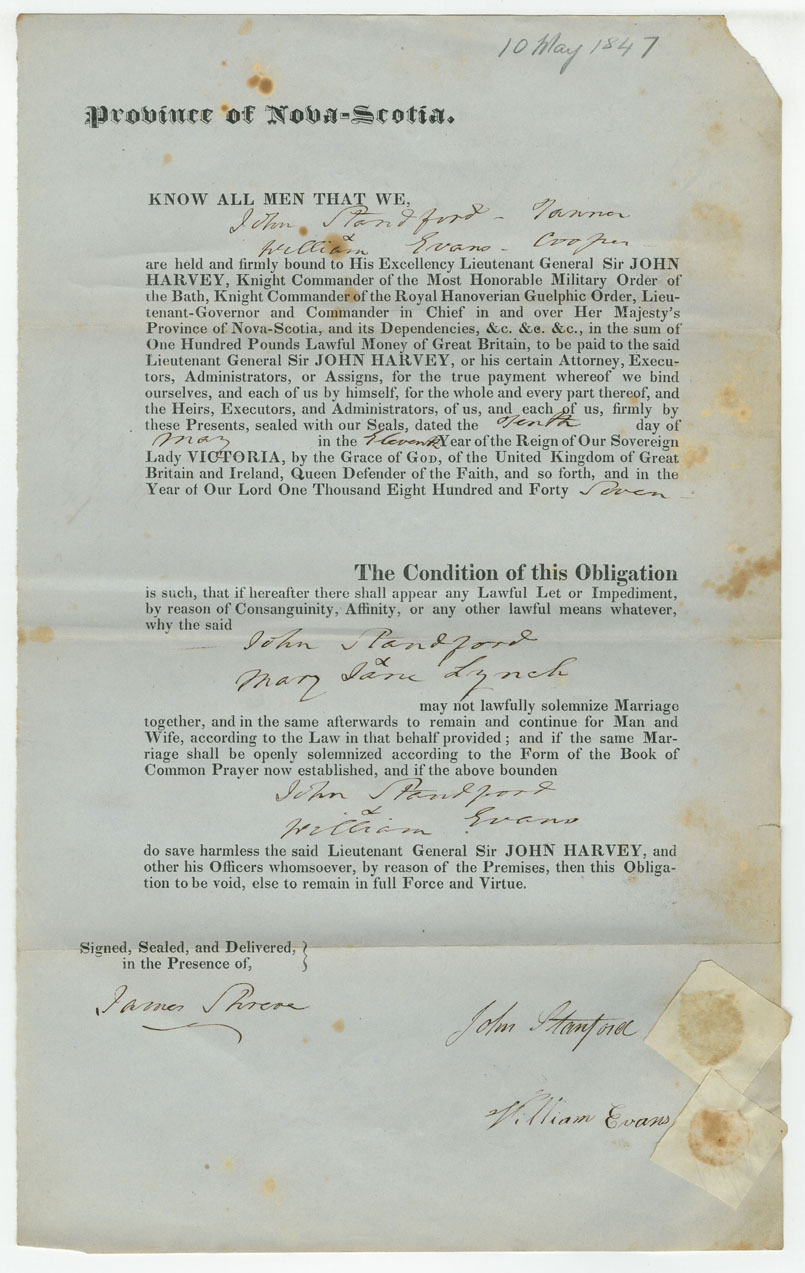 10 May 1847
Province of Nova-Scotia.
KNOW ALL MEN THAT WE,
John Standford - Tanner
&
William Evans - Cooper
are held and firmly bound to His Excellency Lieutenant General Sir JOHN
HARVEY, Knight Commander of the Most Honorable Military Order of
the Bath, Knight Commander of the Royal Hanoverian Guelphic Order, Lieu-
tenant-Governor and Commander in Chief in and over Her Majesty's
Province of Nova-Scotia, and its Dependencies, &c. &c. &c., in the sum of
One Hundred Pounds Lawful Money of Great Britain, to be paid to the said
Lieutenant General Sir JOHN HARVEY, or his certain Attorney, Execu-
tors, Administrators, or Assigns, for the true payment whereof we bind
ourselves, and each of us by himself, for the whole and every part thereof, and
the Heirs, Executors, and Administrators, of us, and each of us, firmly by
these Presents, sealed with our Seals, dated the Tenth day of
May in the Eleventh Year of the Reign of Our Sovereign
Lady VICTORIA, by the Grace of GOD, of the United Kingdom of Great
Britain and Ireland, Queen Defender of the Faith, and so forth, and in the
Year of Our Lord One Thousand Eight Hundred and Forty Seven
The Condition of this Obligation
is such, that if hereafter there shall appear any Lawful Let or Impediment,
by reason of Consanguinity, Affinity, or any other lawful means whatever,
why the said
John Standford
&
Mary Jane Lynch
may not lawfully solemnize Marriage
together, and in the same afterwards to remain and continue for Man and
Wife, according to the Law in that behalf provided ; and if the same Mar-
riage shall be openly solemnized according to the Form of the Book of
Common Prayer now established, and if the above bounden
John Standford
&
William Evans
do save harmless the said Lieutenant General Sir JOHN HARVEY, and
other his Officers whomsoever, by reason of the Premises, then this Obliga-
tion to be void, else to remain in full Force and Virtue.
Signed, Sealed, and Delivered,
in the Presence of,
James Shreve
John Stanford
William Evans